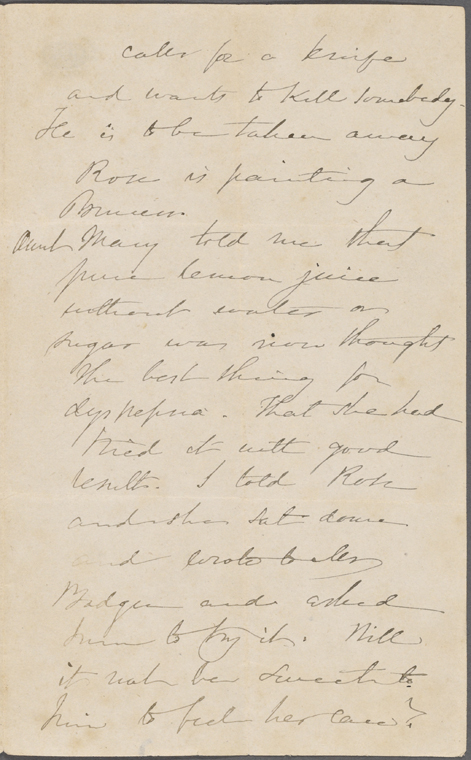 calls for a knife
and wants to kill somebody.
He is to be taken away
Rose is painting a
Aunt Mary told me that
pure lemon juice
without water or
sugar was now thought
the best thing for
dyspepsia. That she had
tried it with good
results. I told Rose
and she sat down
and wrote to
and asked
him to try it. Will
it not be sweet to
him to feel her care?